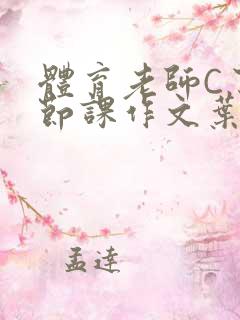 體育老師C了
節課作文葉
孟達